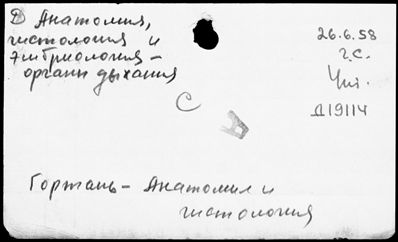 ② Анатомия,
гистология и
эмбриология -
органы дыхания
26.6.58
г.с.
Чит.
Д19114
С
А
Гортань - Анатомия и
гистология